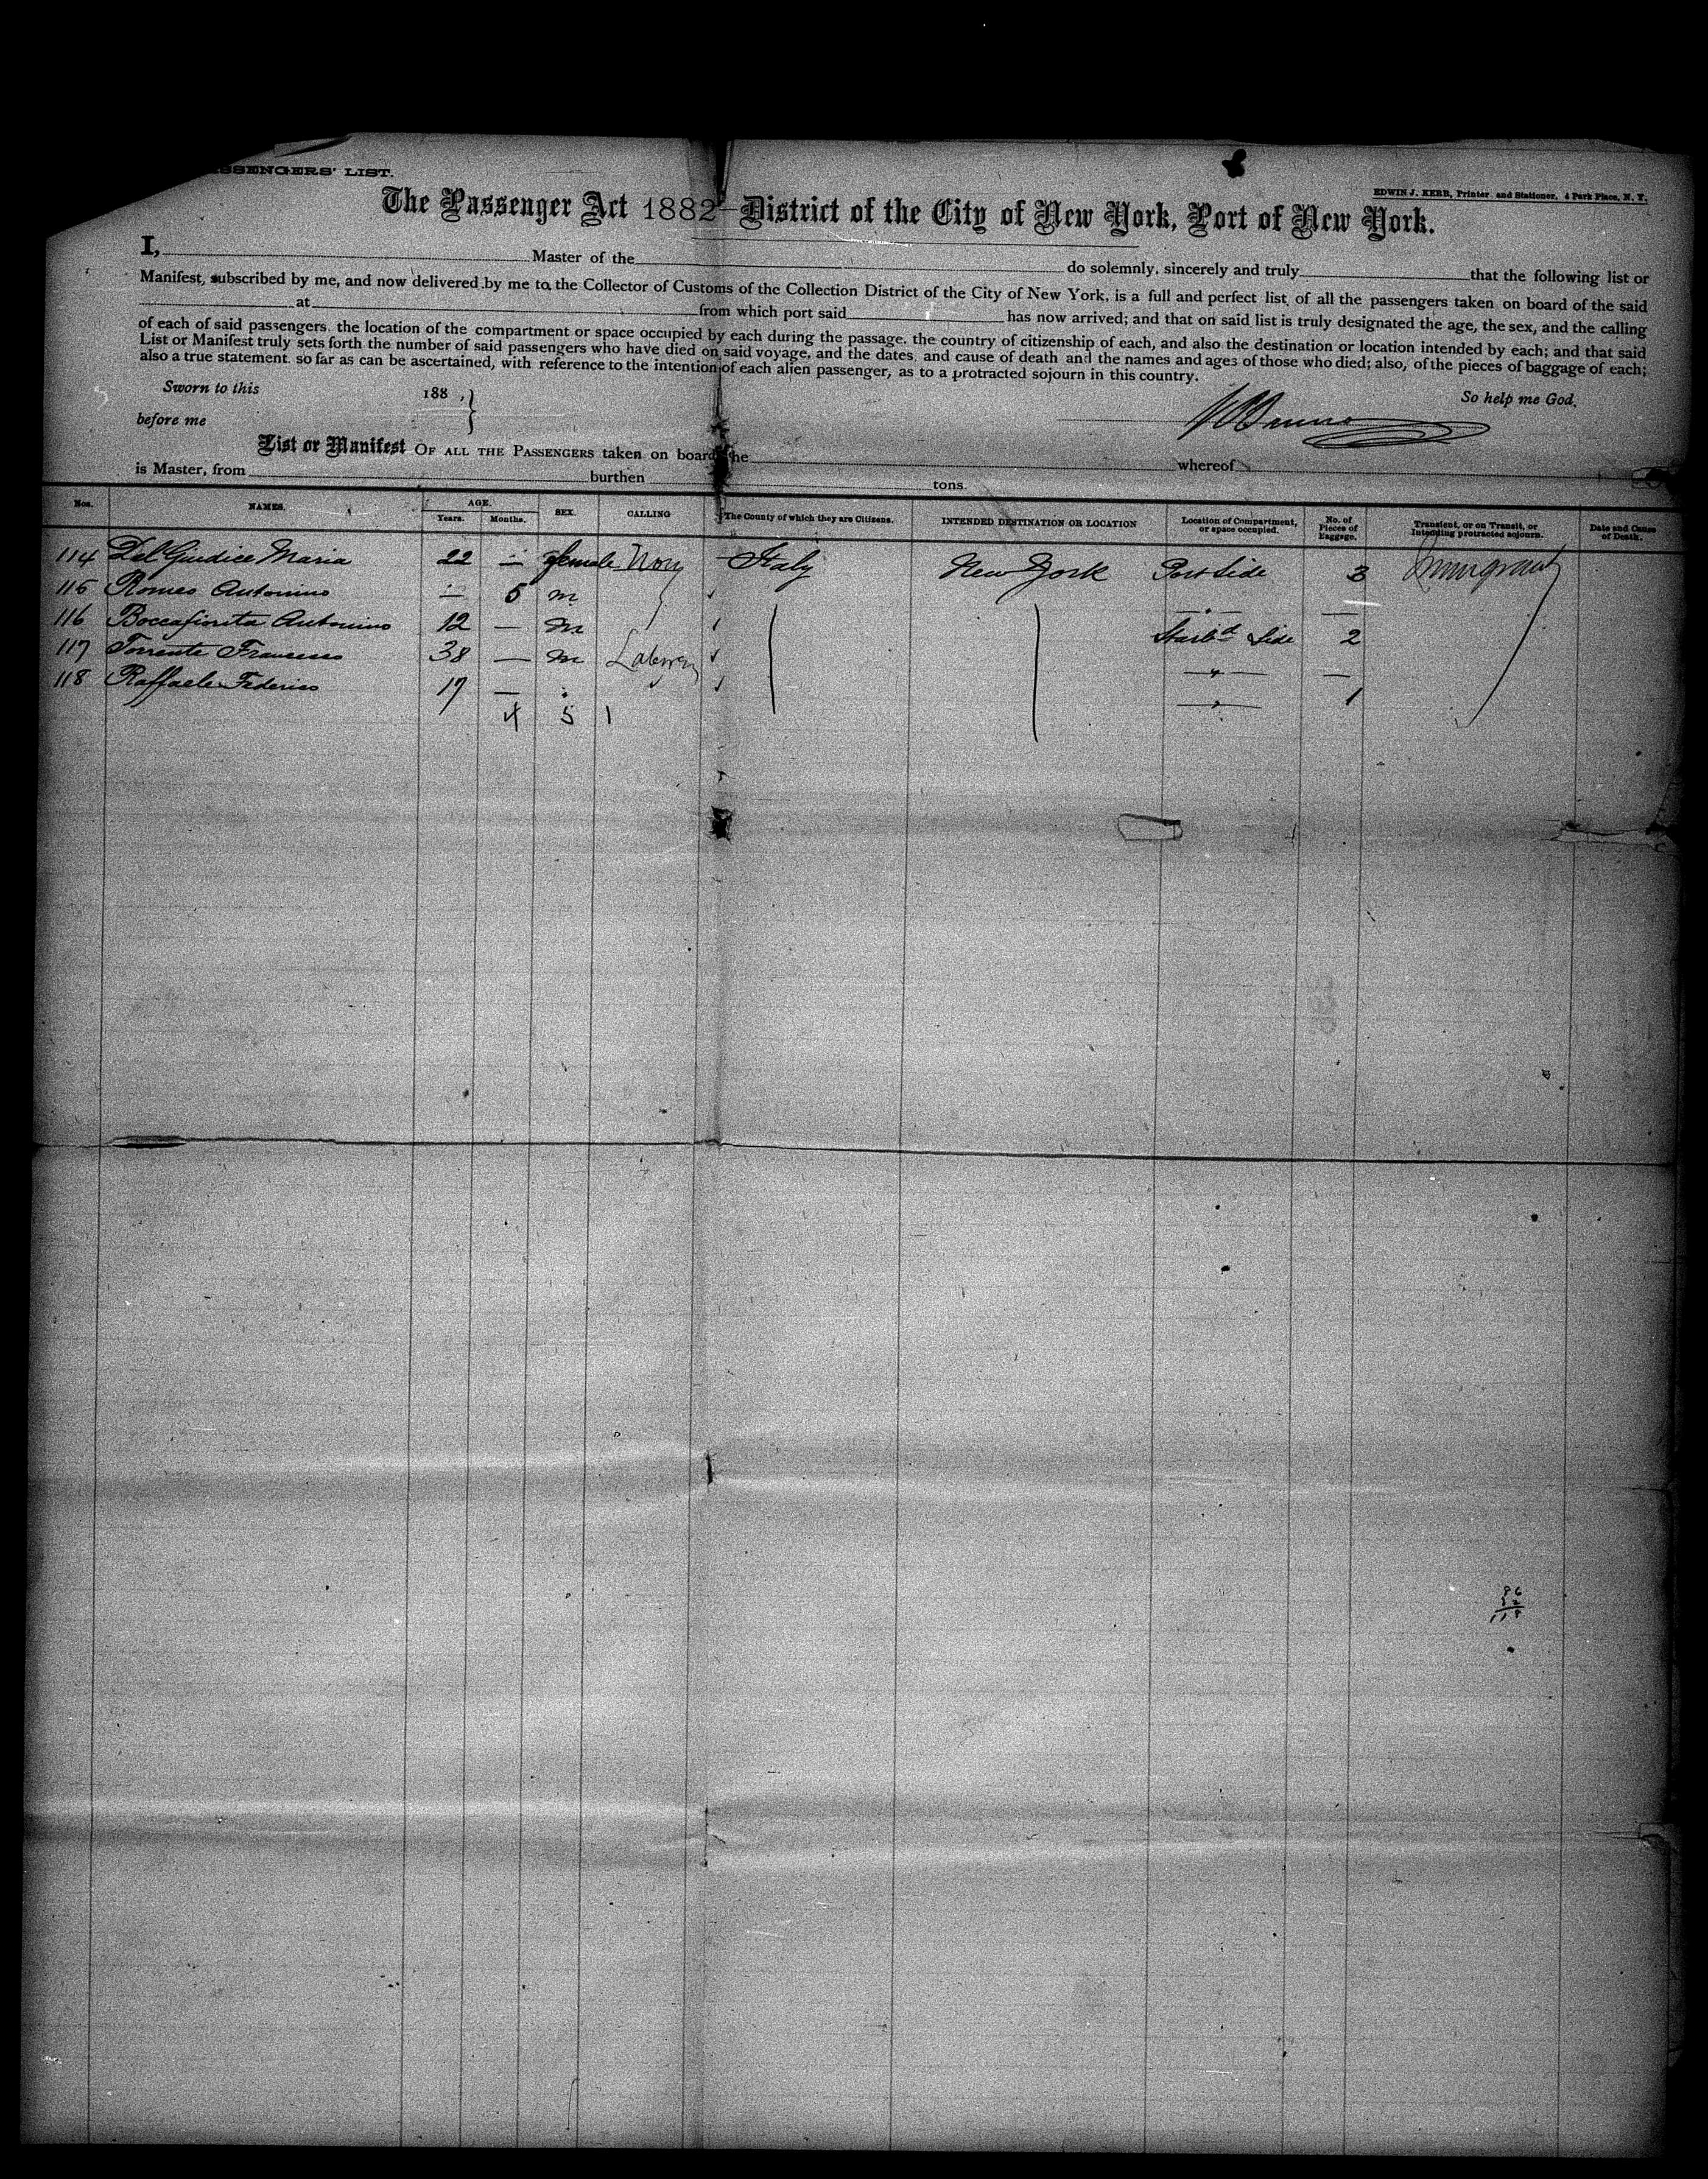 SSENGERS' LIST.
EDWIN J. KERR, Printer and Stationer, 4 Park Place, N. Y.
The Passenger Act 1882—District of the City of New York, Port of New York.
I, Master of the do solemnly, sincerely and truly that the following list or
Manifest, subscribed by me, and now delivered by me to the Collector of Customs of the Collection District of the City of New York, is a full and perfect list of all the passengers taken on board of the said
at from which port said has now arrived; and that on said list is truly designated the age, the sex, and the calling
of each of said passengers, the location of the compartment or space occupied by each during the passage, the country of citizenship of each, and also the destination or location intended by each; and that said
List or Manifest truly sets forth the number of said passengers who have died on said voyage, and the dates and cause of death and the names and ages of those who died; also, of the pieces of baggage of each;
also a true statement, so far as can be ascertained, with reference to the intention of each alien passenger, as to a protracted sojourn in this country.
Sworn to this 188 , So help me God,
before me
List or Manifest OF ALL THE PASSENGERS taken on board the whereof
is Master, from burthen tons
Nos. NAMES. AGE. Years. Months. SEX. CALLING The County of which they are Citizens. INTENDED DESTINATION OR LOCATION Location of Compartment, or space occupied. No. of Pieces of Baggage. Transient, or on Transit, or Intending protracted sojourn. Date and Cause of Death.
114 Del Giudice Maria 22 — female Italy New York Port Side 3 Immigrant
115 Romeo Antonino — 5 m — " — —
116 Boccafiorita Antonino 12 — m Starbd Side 2
117 Torrente Francesco 38 — m — " — —
118 Raffaele Federico 17 — " — " — 1
4 5 1
86
32
118